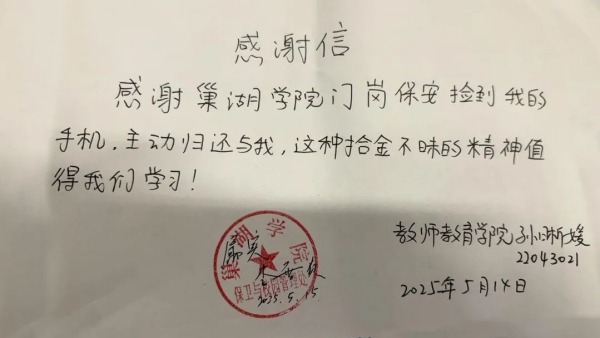 感谢信
感谢巢湖学院门岗保安捡到我的
手机，主动归还与我，这种拾金不昧的精神值
得我们学习！
教师教育学院孙淅媛
22043021
2025年5月14日
巢湖学院
属实
保卫与校园管理处
2025.5.15